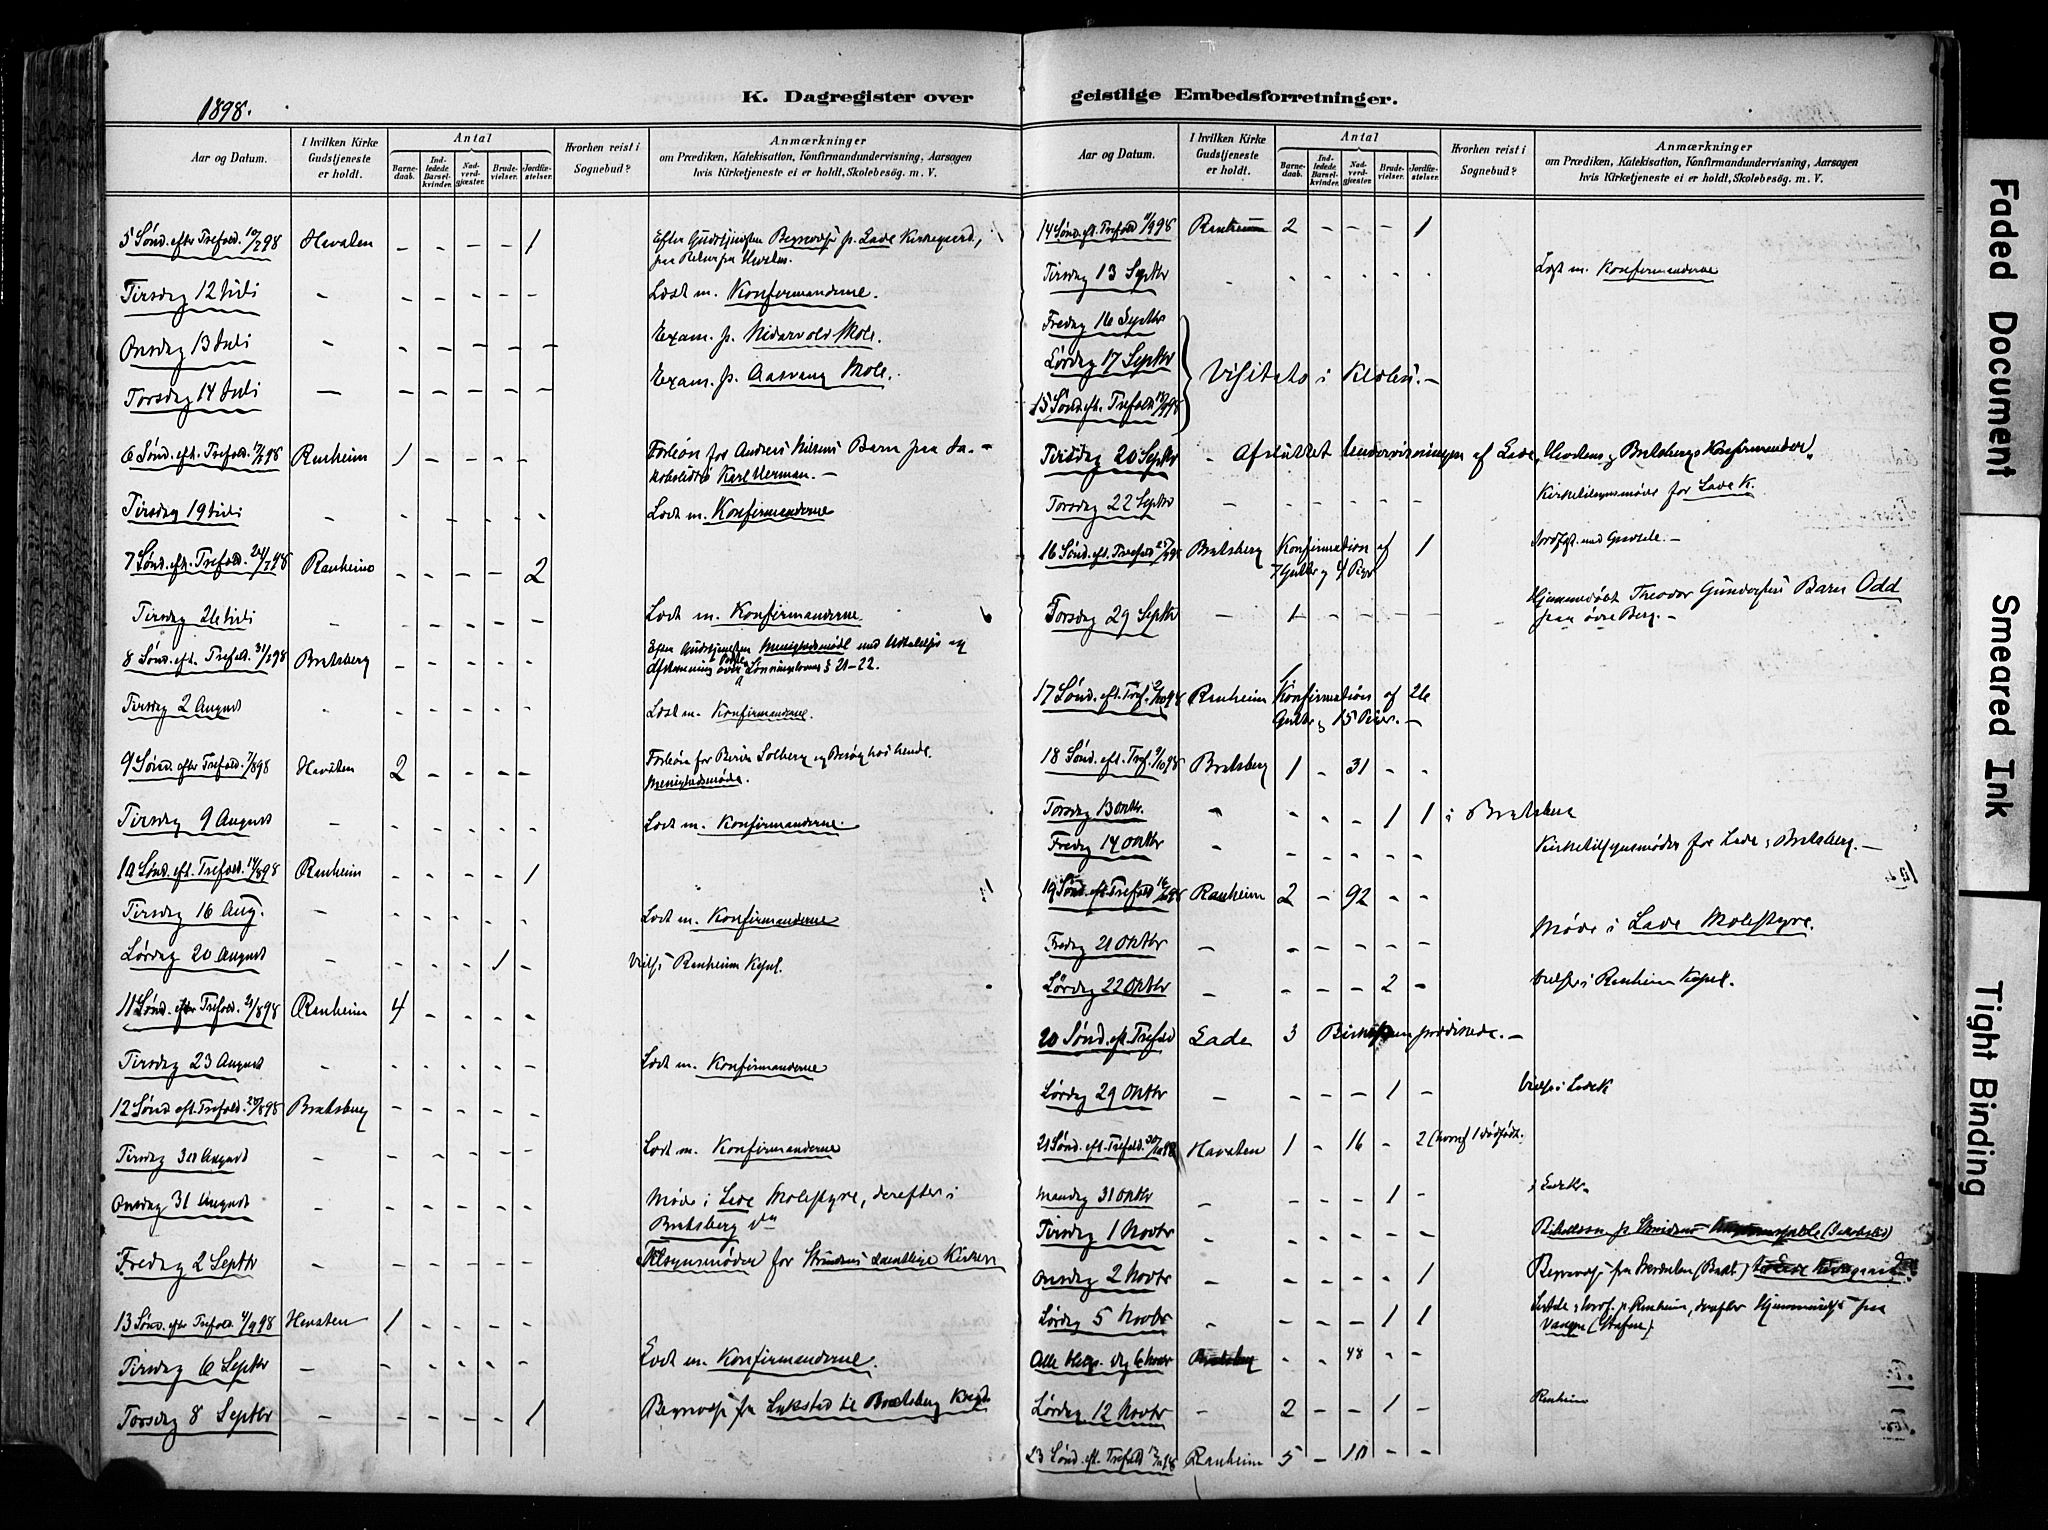 1898.
K. Dagregister over
Aar og Datum.
I hvilken Kirke Gudstjeneste er holdt.
Antal
Barnedaab.
Indledede Barselkvinder.
Nadverdgjæster.
Brudevielser.
Jordfæstelser.
Hvorhen reist i Sognebud?
Anmærkninger
om Prædiken, Katekisation, Konfirmandundervisning, Aarsagen
hvis Kirketjeneste ei er holdt, Skolebesøg. m. V.
5 Sønd. efter Trefold. 10/7 98 Hevaten - - - - 1 Efter Gudstjenesten p. Lade Kirkegaard,
Tirsdag 12 Juli - - - - - - Læst m. Konfirmanderne.
Onsdag 13 Juli - - - - - - Exam. p. Nidarvold Skole.
Torsdag 14 Juli - - - - - - Exam. p. Aasvang Skole.
6 Sønd. eft. Trefold. 17/7 98 Ranheim 1 - - - - Forbøn for Barn paa Ja-
Karl Herman. -
Tirsdag 19 Juli - - - - - - Læst m. Konfirmanderne
7 Sønd. eft. Trefold. 24/7 98 Ranheim - - - - 2
Tirsdag 26 Juli - - - - - - Læst m. Konfirmanderne
8 Sønd. eft. Trefold. 31/7 98 Bratsberg - - - - - Efter Gudstjenesten Menighedsmøde med og
Afstemning over § 21-22.
Tirsdag 2 August - - - - - - Læst m. Konfirmanderne.
9 Sønd. efter Trefold. 7/8 98 Hevaten 2 - - - - Forbøn for Solberg og Besøg hos hende.
Menighedsmøde.
Tirsdag 9 August - - - - - - Læst m. Konfirmanderne.
10 Sønd. eft. Trefold. 14/8 98 Ranheim - - - - 1
Tirsdag 16 Aug. - - - - - - Læst m. Konfirmanderne
Lørdag 20 August - - - - 1 - Ranheim Kapel.
11 Sønd. efter Trefold. 21/8 98 Ranheim 4 - - - -
Tirsdag 23 August - - - - - - Læst m. Konfirmanderne
12 Sønd. eft. Trefold. 28/8 98 Bratsberg - - - - -
Tirsdag 30 August - - - - - - Læst m. Konfirmanderne
Onsdag 31 August - - - - - - Møde i Lade Skolestyre, derefter i
Bratsberg do
Fredag 2 Septbr - - - - - - Tilsynsmøder for Strindens samtlige Kirker
13 Sønd. efter Trefold. 4/9 98 Hevaten 1 - - - -
Tirsdag 6 Septbr - - - - - - Læst m. Konfirmanderne.
Torsdag 8 Septbr - - - - - 1 til Bratsberg
geistlige Embedsforretninger.
Aar og Datum.
I hvilken Kirke Gudstjeneste er holdt.
Antal
Barnedaab.
Indledede Barselkvinder.
Nadverdgjæster.
Brudevielser.
Jordfæstelser.
Hvorhen reist i Sognebud?
Anmærkninger
om Prædiken, Katekisation, Konfirmandundervisning, Aarsagen
hvis Kirketjeneste ei er holdt, Skolebesøg. m. V.
14 Sønd. eft. Trefold. 11/9 98 Ranheim 2 - - - 1
Tirsdag 13 Septbr - - - - - - Læst m. Konfirmanderne
Fredag 16 Septbr
Lørdag 17 Septbr Visitats i Klæbu. -
15 Sønd. eft. Trefold. 18/9 98
Tirsdag 20 Septbr - Afsluttet Undervisningen af Lade, Hevatens og Bratsbergs Konfirmander.
Torsdag 22 Septbr - - - - - - Kirketilsynsmøde for Lade K.
16 Sønd. eft. Trefold. 25/9 98 Bratsberg Konfirmation af 1 Jordfæst. med -
7 Gutter og 4 Piger
Torsdag 29 Septbr - 1 - - - - Hjemmedøbt Theodor Barn Odd
paa øvre Berg. -
17 Sønd. eft. Tref. 2/10 98 Ranheim Konfirmation af 26
Gutter og 15 Piger. -
18 Sønd. eft. Tref. 9/10 98 Bratsberg 1 - 31 - -
Torsdag 13 Oktbr. - - - - 1 1 i Bratsberg
Fredag 14 Oktbr - - - - - - Kirketilsynsmøder for Lade, Bratsberg. -
19 Sønd. eft. Trefold 16/10 98 Ranheim 2 - 92 - -
Fredag 21 Oktbr - - - - - - Møde i Lade Skolestyre.
Lørdag 22 Oktbr - - - - 2 - Vielse i Ranheim Kapel.
20 Sønd. eft. Trefold Lade 3 Biskopen prædikede. -
Lørdag 29 Oktbr - - - - 1 - Vielse i Lade K
21 Sønd. eft. Trefold. 30/10 98 Hevaten 1 - 16 - 2 (hvoraf 1 dødfødt.
Mandag 31 Oktbr - - - - 1 -
Tirsdag 1 Novbr - - - - - -
Onsdag 2 Novbr - - - - - 1
Lørdag 5 Novbr - - - - 1 1 p. Ranheim, derefter paa
Alle Helg. Dag 6 Novbr Bratsberg - - 48 - -
Lørdag 12 Novbr - 2 - - 1 - Ranheim
23 Sønd. eft. Trefold 13/11 98 Ranheim 5 - 10 - -
Faded Document
Smeared Ink
Tight Binding